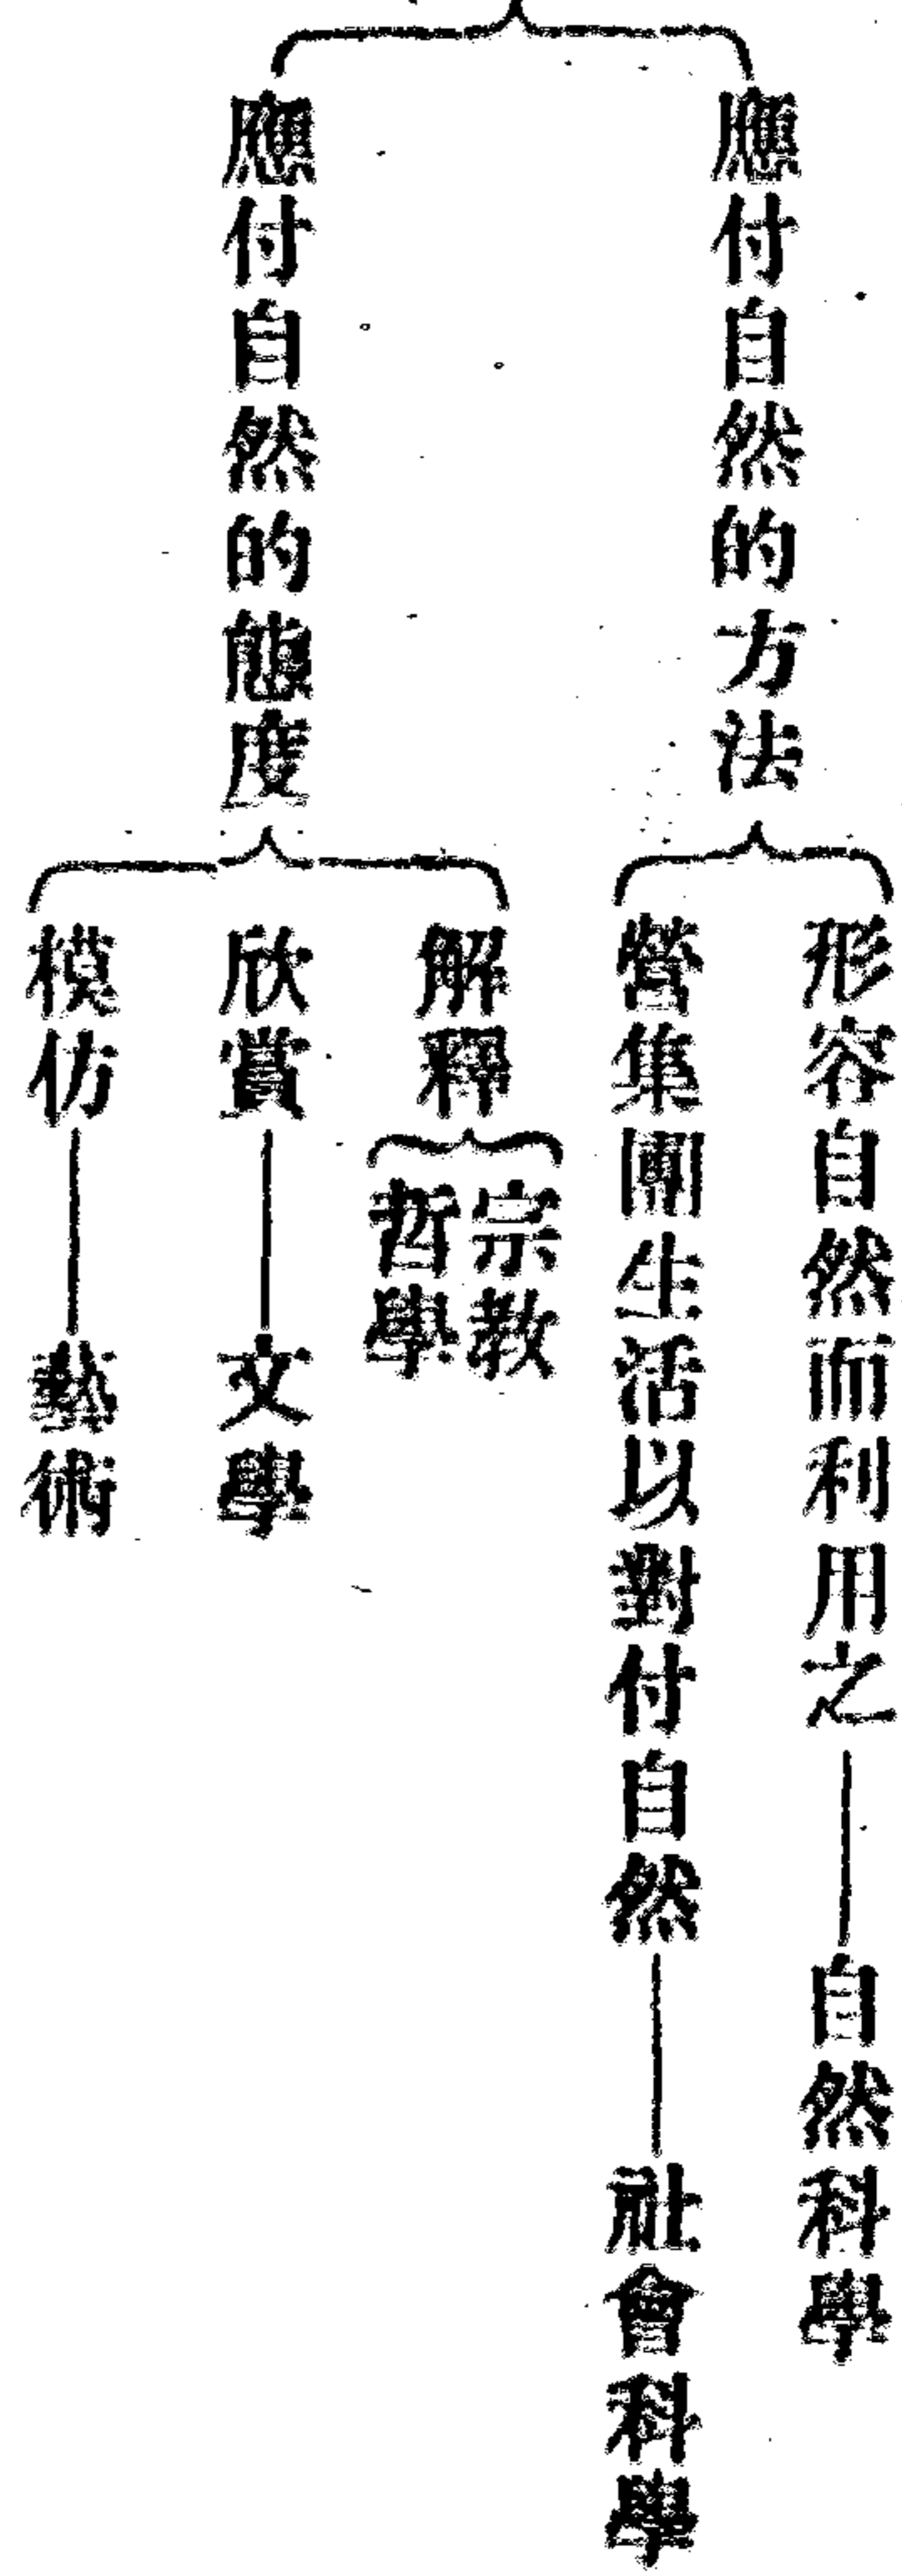 應付自然的方法
形容自然而利用之——自然科學
營集團生活以對付自然——社會科學
應付自然的態度
解釋
宗教
哲學
欣賞——文學
模仿——藝術